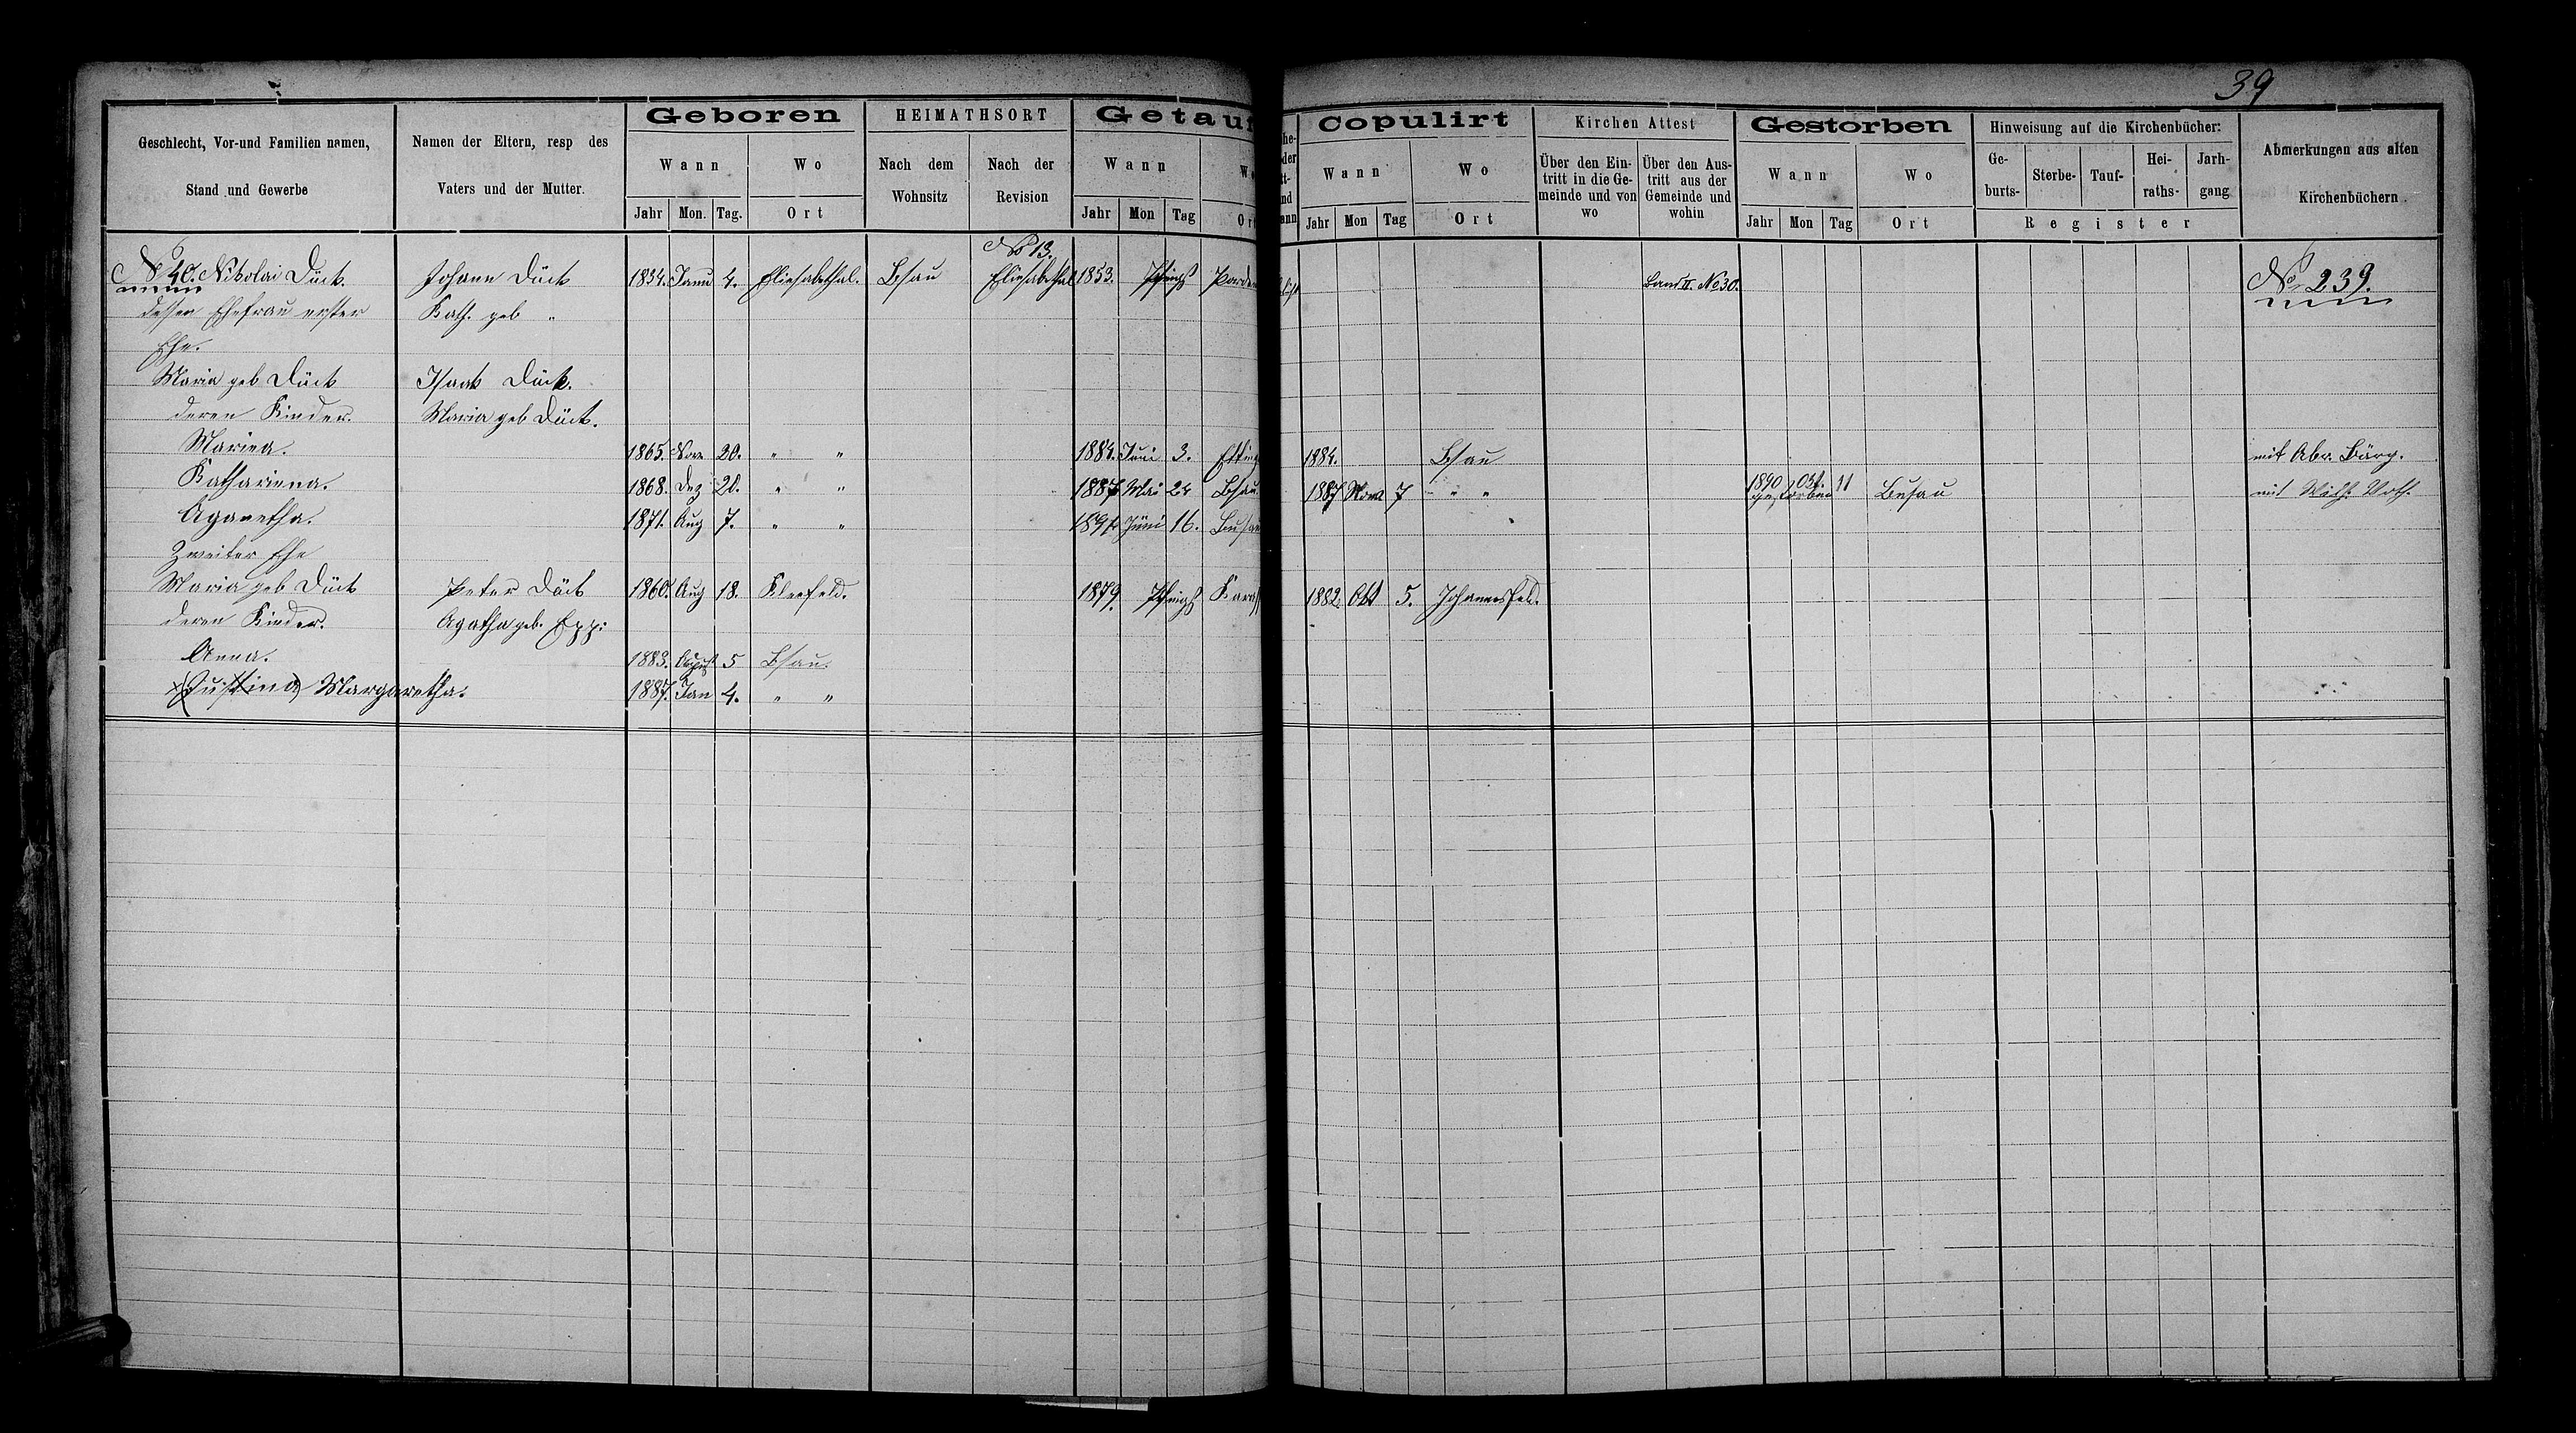 39
Geschlecht, Vor-und Familien namen, Stand und Gewerbe
Namen der Eltern, resp des Vaters und der Mutter.
Geboren
Wann
Wo
Jahr Mon. Tag. Ort
HEIMATHSORT
Nach dem Wohnsitz
Nach der Revision
Getauf
Wann
Jahr Mon Tag Ort
Copulirt
Wann
Wo
Jahr Mon Tag Ort
Kirchen Attest
Über den Ein-tritt in die Ge-meinde und von wo
Über den Aus-tritt aus der Gemeinde und wohin
Gestorben
Wann
Wo
Jahr Mon Tag Ort
Hinweisung auf die Kirchenbücher:
Ge-burts- Sterbe- Tauf- Hei-raths- Jarh-gang
Register
Abmerkungen aus alten Kirchenbüchern.
No 13.
No 40. Nikolai Dück. Johann Dück 1834. Janu 4. Eliesabethal. Bsau Eliesabethal 1853. Pfings Band II. No 30. No 239.
dessen Ehefrau erster Kath. geb "
Ehe.
Maria geb Dück Isaak Dück.
deren Kinder. Maria geb Dück.
Mariea. 1865. Nov 20. " " 1884. Juni 3. 1884. Bsau mit Abr. Bärg.
Katharinna. 1868. Dez 20. " " 1887 Mai 24 Bsau 1887 Nov 7 " " 1890 Okt. 11 gestorben Busau mit Wilh. Voth.
Aganetha. 1871. Aug 7. " " 1891. Juni 16. Busau
Zweiter Ehe
Maria geb Dück Peter Dück 1860. Aug 18. Kleefeld. 1879. Pfings 1882. Okt 5. Johannesfeld.
deren Kinder. Agatha geb. Epp.
Anna. 1883. August 5 Bsau.
(Justina) Margaretha. 1887. Jan 4. " "